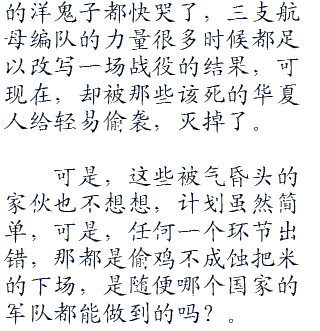 的洋鬼子都快哭了，三支航
母编队的力量很多时候都足
以改写一场战役的结果，可
现在，却被那些该死的华夏
人给轻易偷袭，灭掉了。
可是，这些被气昏头的
家伙也不想想，计划虽然简
单，可是，任何一个环节出
错，那都是偷鸡不成蚀把米
的下场，是随便哪个国家的
军队都能做到的吗？。